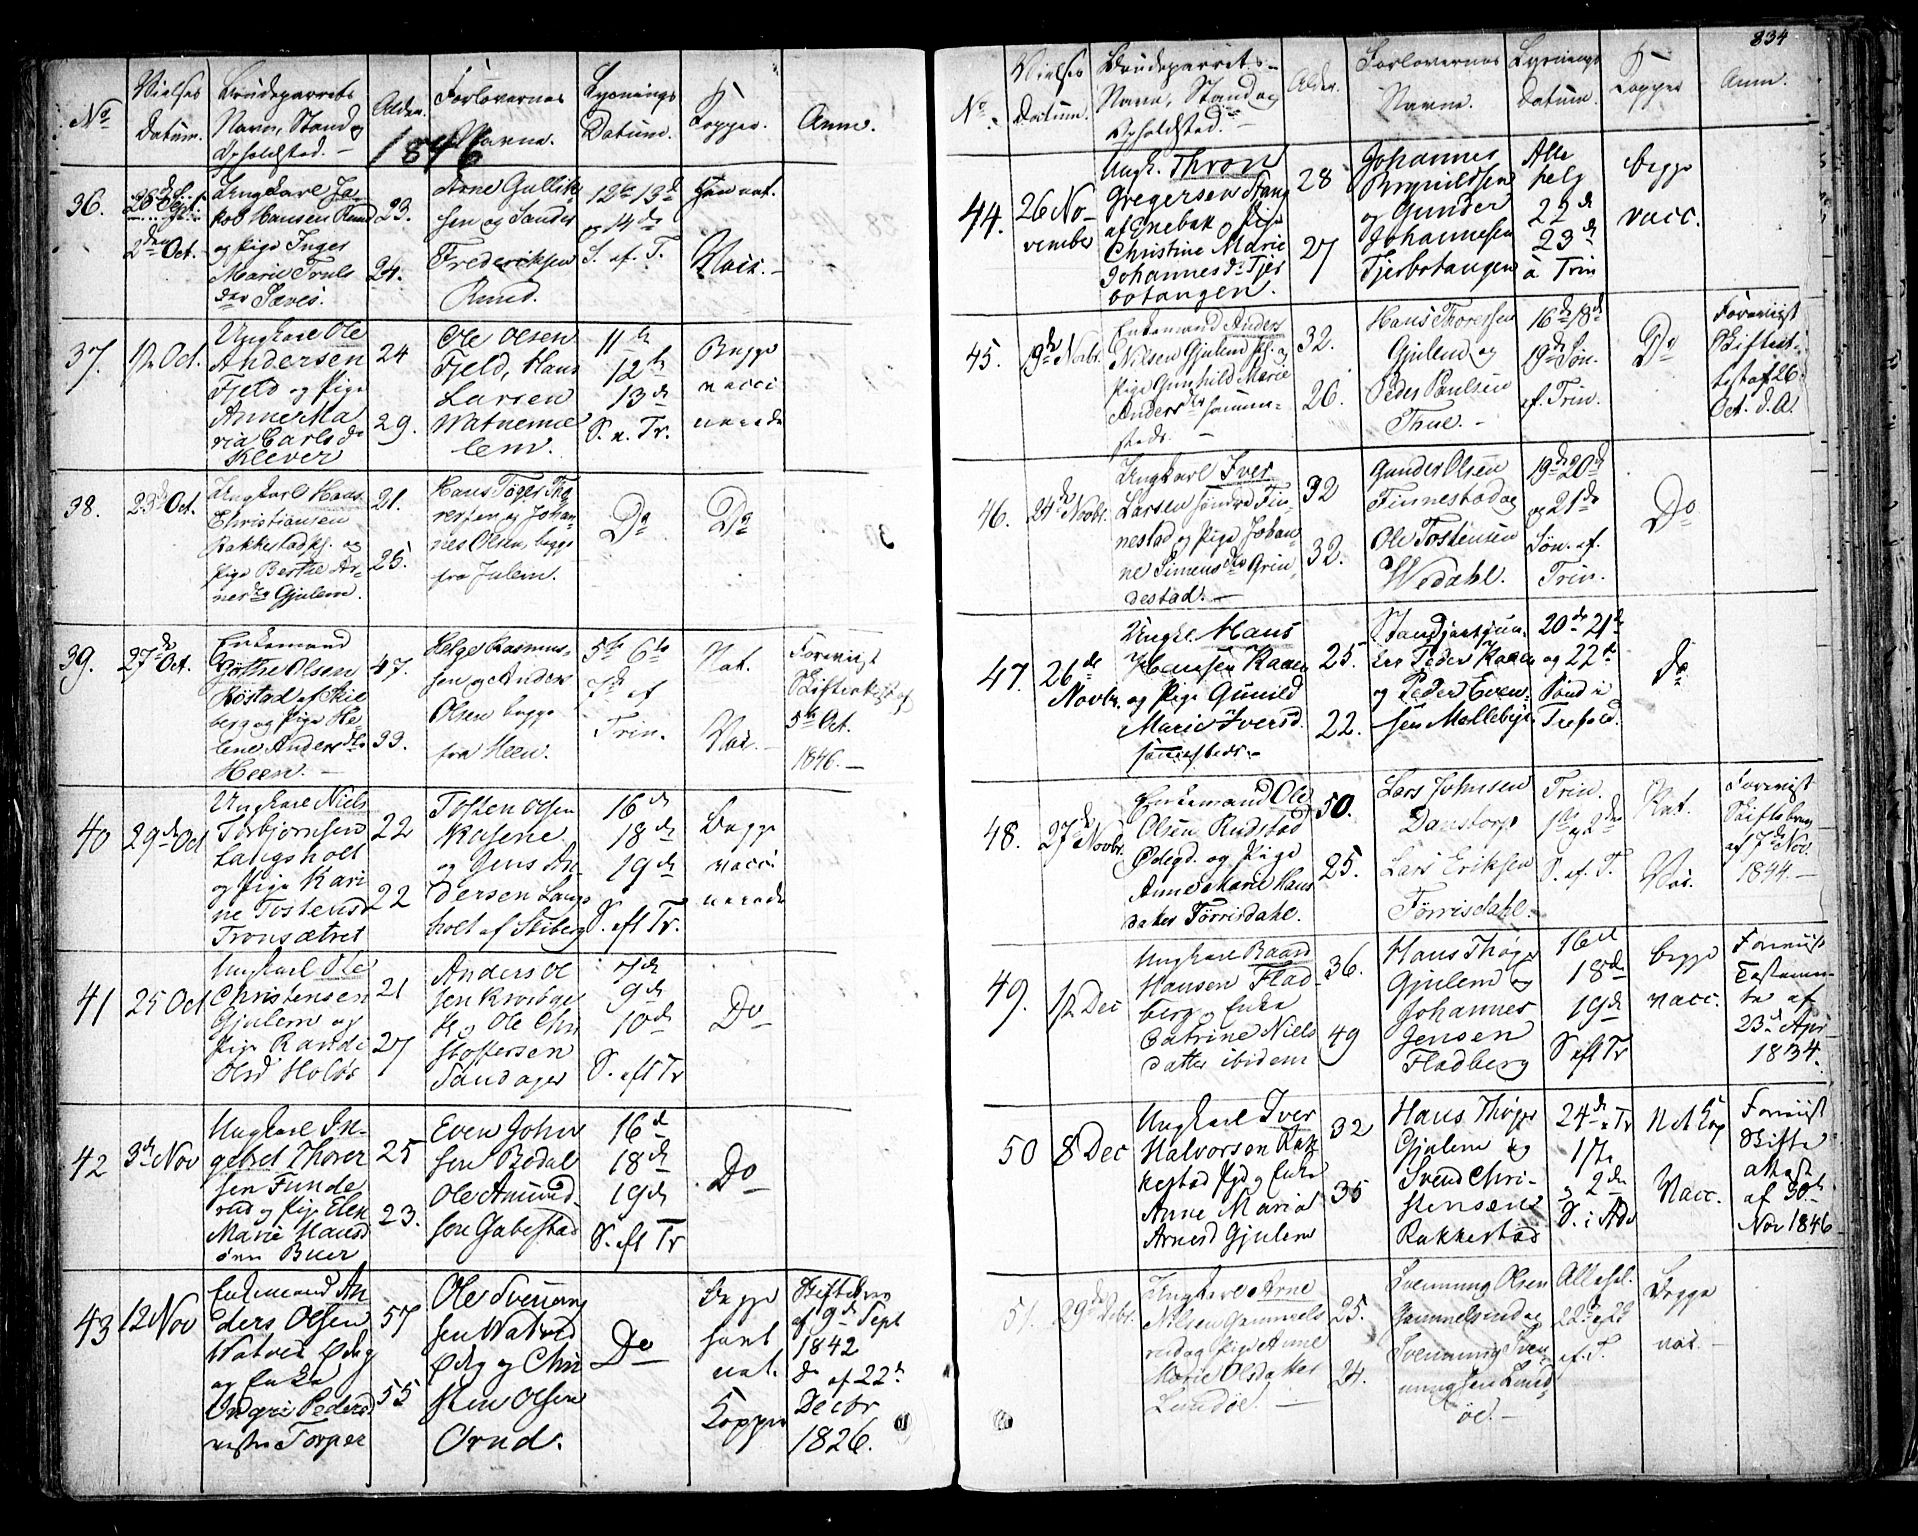 834
No Vielses Datum. Brudeparrets Navn, Stand og Opholdsted. Alder. Forlovernes Navne. Lysnings Datum. Kopper. Anm.
1846
36.
2den Oct.
Ungkarl Ja
kob Hansen Rud
og Pige Inger
Marie Truls
23.
24.
Arne Gullik
sen og
Frederiksen
Rud.
12te 13de
og 14de
S. ef. T.
Han nat.
Vacc.
37.
12 Oct.
Ungkarl Ole
Andersen
Fjeld og Pige
Anne Ma
ria Carlsd.
Kløver
24
29.
Ole Olsen
Fjeld, Hans
Larsen
11te
12te
13de
S. e. Tr.
Begge
vacci
nerede
38.
23de Oct.
Ungkarl Hans
Christiansen
Rakkestad og
Pige Berthe Ar
Gjulem.
21.
25.
Hans
og Johan
nes Olsen, begge
fra Julem.
Do
Do
39.
27de Oct.
Enkemand
Olsen
af
berg og Pige He
lene Andersdtr
Heen.
47.
33.
Helge Rasmus
sen og Anders
Olsen begge
fra Heen.
5te 6te
7de ef
Trin.
Nat.
Vac.
Foreviist
Skifteattest af
5te Oct.
1846.
40
29de Oct
Ungkarl Niels
Torbjørnsen
Langsholt
og Pige Kari
ne Tostensd
Tronsætret
22
22
Tosten Olsen
Kasene
og Jens An
dersen Langs
holt af Skiberg
16de
18de
19de
S. eft Tr.
Begge
vacci
nerede
41
25 Oct
Ungkarl Ole
Christensen
Gjulem og
Pige Randi
Olsd Holte
21
27
Anders Ol
sen
og Ole Chri
stoffersen
Sandager
9de
10de
S. eft Tr
Do
42
3de Nov
Ungkarl In
gebret Thorer
sen Funde
rud og Pige Elen
Marie Hansd
Buer
25
23.
Even John
sen Bødal
Ole Amund
sen Gabestad
16de
18de
19de
S. eft Tr
Do
43
12 Nov
Enkemand An
ders Olsen
Watvet Ødeg
og Enke
Ingri Pedersd
Torper
57
55
Ole Svenning
sen Watvet
Ødeg og Chri
sten Olsen
Orud.
Do
Begge
havt
nat.
Kopper
Skiftebrev
af 9de Sept
1842
do af 22de
Decbr
1826.
No Vielses Datum. Brudeparrets Navn, Stand og Opholdsted. Alder. Forlovernes Navne. Lysnings Datum. Kopper Anm.
44.
26 No
vember
Ungk. Thron
Gregersen Stang
af Enebak og Pige
Christine Marie
Johannesd. Tjer
botangen.
28
27
Johannes
Brynildsen
og Gunder
Johannesen
Tjerbotangen
Alle
helg
22de
23de
a Trin
begge
vacc.
45.
19de Novbr.
Enkemand Anders
Nilsen Gjulem og
Pige Gunhild Marie
Andersdtr samme
steds.
32.
26.
Hans Thoresen
Gjulem og
Peder Paulsen
Thue.
16de 18de
19de Søn.
ef. Trin.
Do
Foreviist
Skifteat
test af 26.
Oct. d. A.
46.
24de Novbr.
Ungkarl Iver
Larsen søndre Fin
nestad og Pige Johan
ne Simensdtr Grin
destad.
32
32.
Gunder Olsen
Finnestad og
Ole Tostensen
Wedahl.
19de 20de
og 21de
Søn. ef.
Trin.
Do
47.
26de
Novbr.
Ungk. Hans
Hansen Kaaen
og Pige Gunild
Marie Iversd.
sammesteds.
25.
22.
Peder Kaaen
og Peder Even
sen Møllebye
20de 21de
og 22de
Do
48.
27de Novbr.
Enkemand Ole
Olsen Rudstad
Ødegd. og Pige
Anne Marie Hans
datter Tørrisdahl.
50.
25.
Lars Johnsen
Danstorp
Lars Eriksen
Tørrisdahl.
Trin.
1te og 2den
S. ef. T.
Nat.
Vac.
Foreviist
Skiftebrev
af 17de Nov.
1844.
49.
12 Dec
Ungkarl Baard
Hansen Flad
berg og Enke
Catrine Niels
datter ibidem
36.
49
Hans Thøger
Gjulem og
Johannes
Jensen
Fladberg
16de
18de
19de
S. eft Tr
begge
vacc.
Foreviist
Testamen
te af
23de Apr
1834.
50
8 Dec
Ungkarl Iver
Halvorsen Rak
kestad Pgd og Enke
Anne Maria
Arnesd Gjulem
32
35
Hans Thøger
Gjulem og
Svend Chri
stensen
Rakkestad
24de e Tr
1te
og 2den
S. i Adv
Nat Kop
Vacc.
Foreviist
Skifte
attest
af 30te
Nov 1846
51.
29de Decbr.
Ungkarl Arne
Nilsen Gammels
rud og Pige Anne
Marie Olsdatter
Lundøe.
25.
24.
Svenning Olsen
Gammelsrud og
Svenning Sven
ningsen Lund
øe.
Allehel.
ef. T.
Begge
vac.